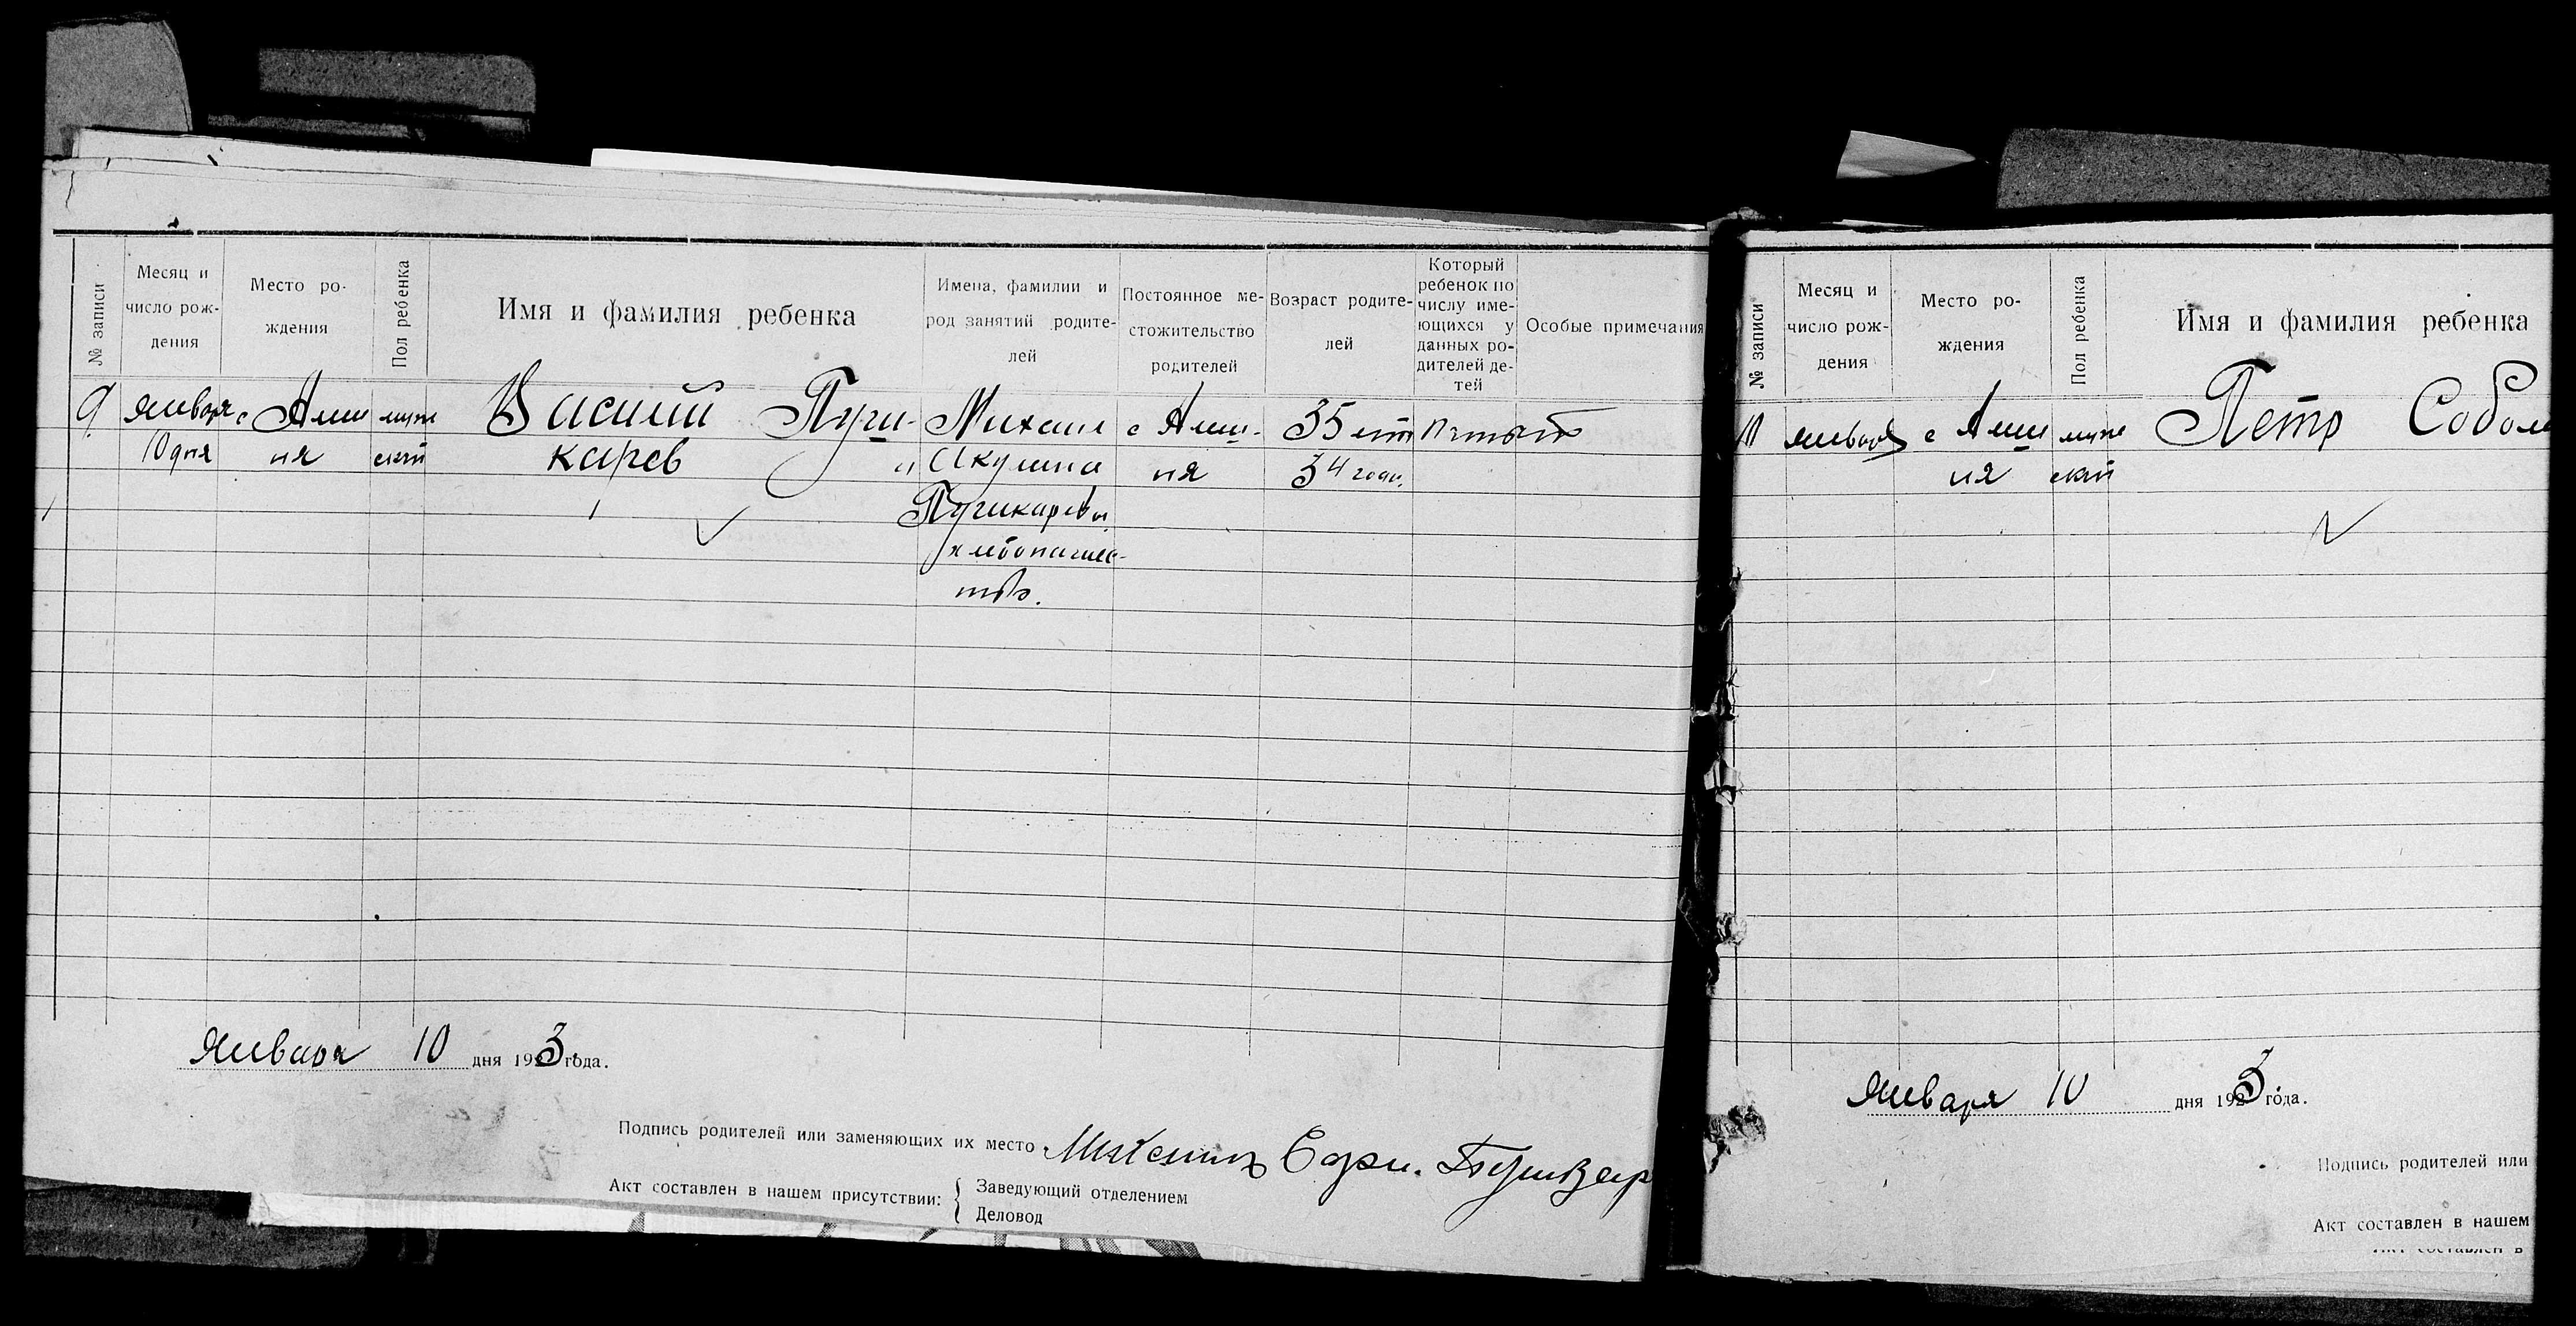 № записи
Месяц и
число рож-
дения
Место ро-
ждения
Пол ребенка
Имя и фамилия ребенка
Имена, фамилии и
род занятий родите-
лей
Постоянное ме-
стожительство
родителей
Возраст родите-
лей
Который
ребенок по
числу име-
ющихся у
данных ро-
дителей де-
тей
Особые примечания
9
января
10 дня
с
ня
муж
ский
Василий
карев
Михаил
и Акулина
хлебопаше-
ство.
с
ня
35 лет
34 года.
Января 10 дня 1923 года.
Подпись родителей или заменяющих их место
Акт составлен в нашем присутствии: { Заведующий отделением
Деловод
№ записи
Месяц и
число рож-
дения
Место ро-
ждения
Пол ребенка
Имя и фамилия ребенка
января
с
ня
муж
ский
Петр Собол
Января 10 дня 1923 года.
Подпись родителей или
Акт составлен в нашем
Акт составлен в